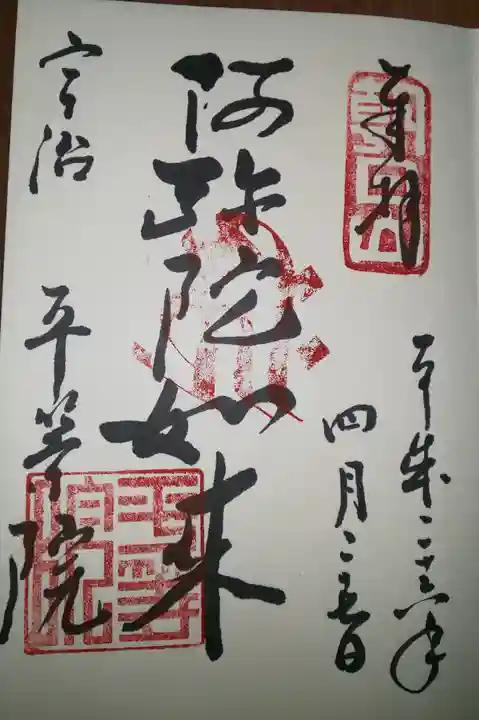 奉拝
平成二十六年
四月二十五日
阿弥陀如来
宇治
平等院